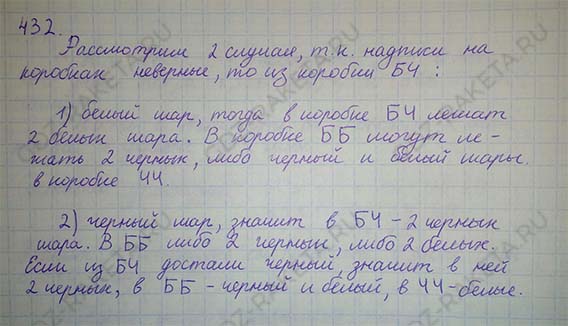 432.
Рассмотрим 2 случая, т.к. надписи на
коробках неверные, то из коробки БЧ :
1) белый шар, тогда в коробке БЧ лежат
2 белых шара. В коробке ББ могут ле-
жать 2 черных, либо черный и белый шары.
в коробке ЧЧ.
2) черный шар, значит в БЧ - 2 черных
шара. В ББ либо 2 черных, либо 2 белых.
Если из БЧ достали черный, значит в ней
2 черных, в ББ - черный и белый, в ЧЧ-белые.
GDZ-RAKETA.RU